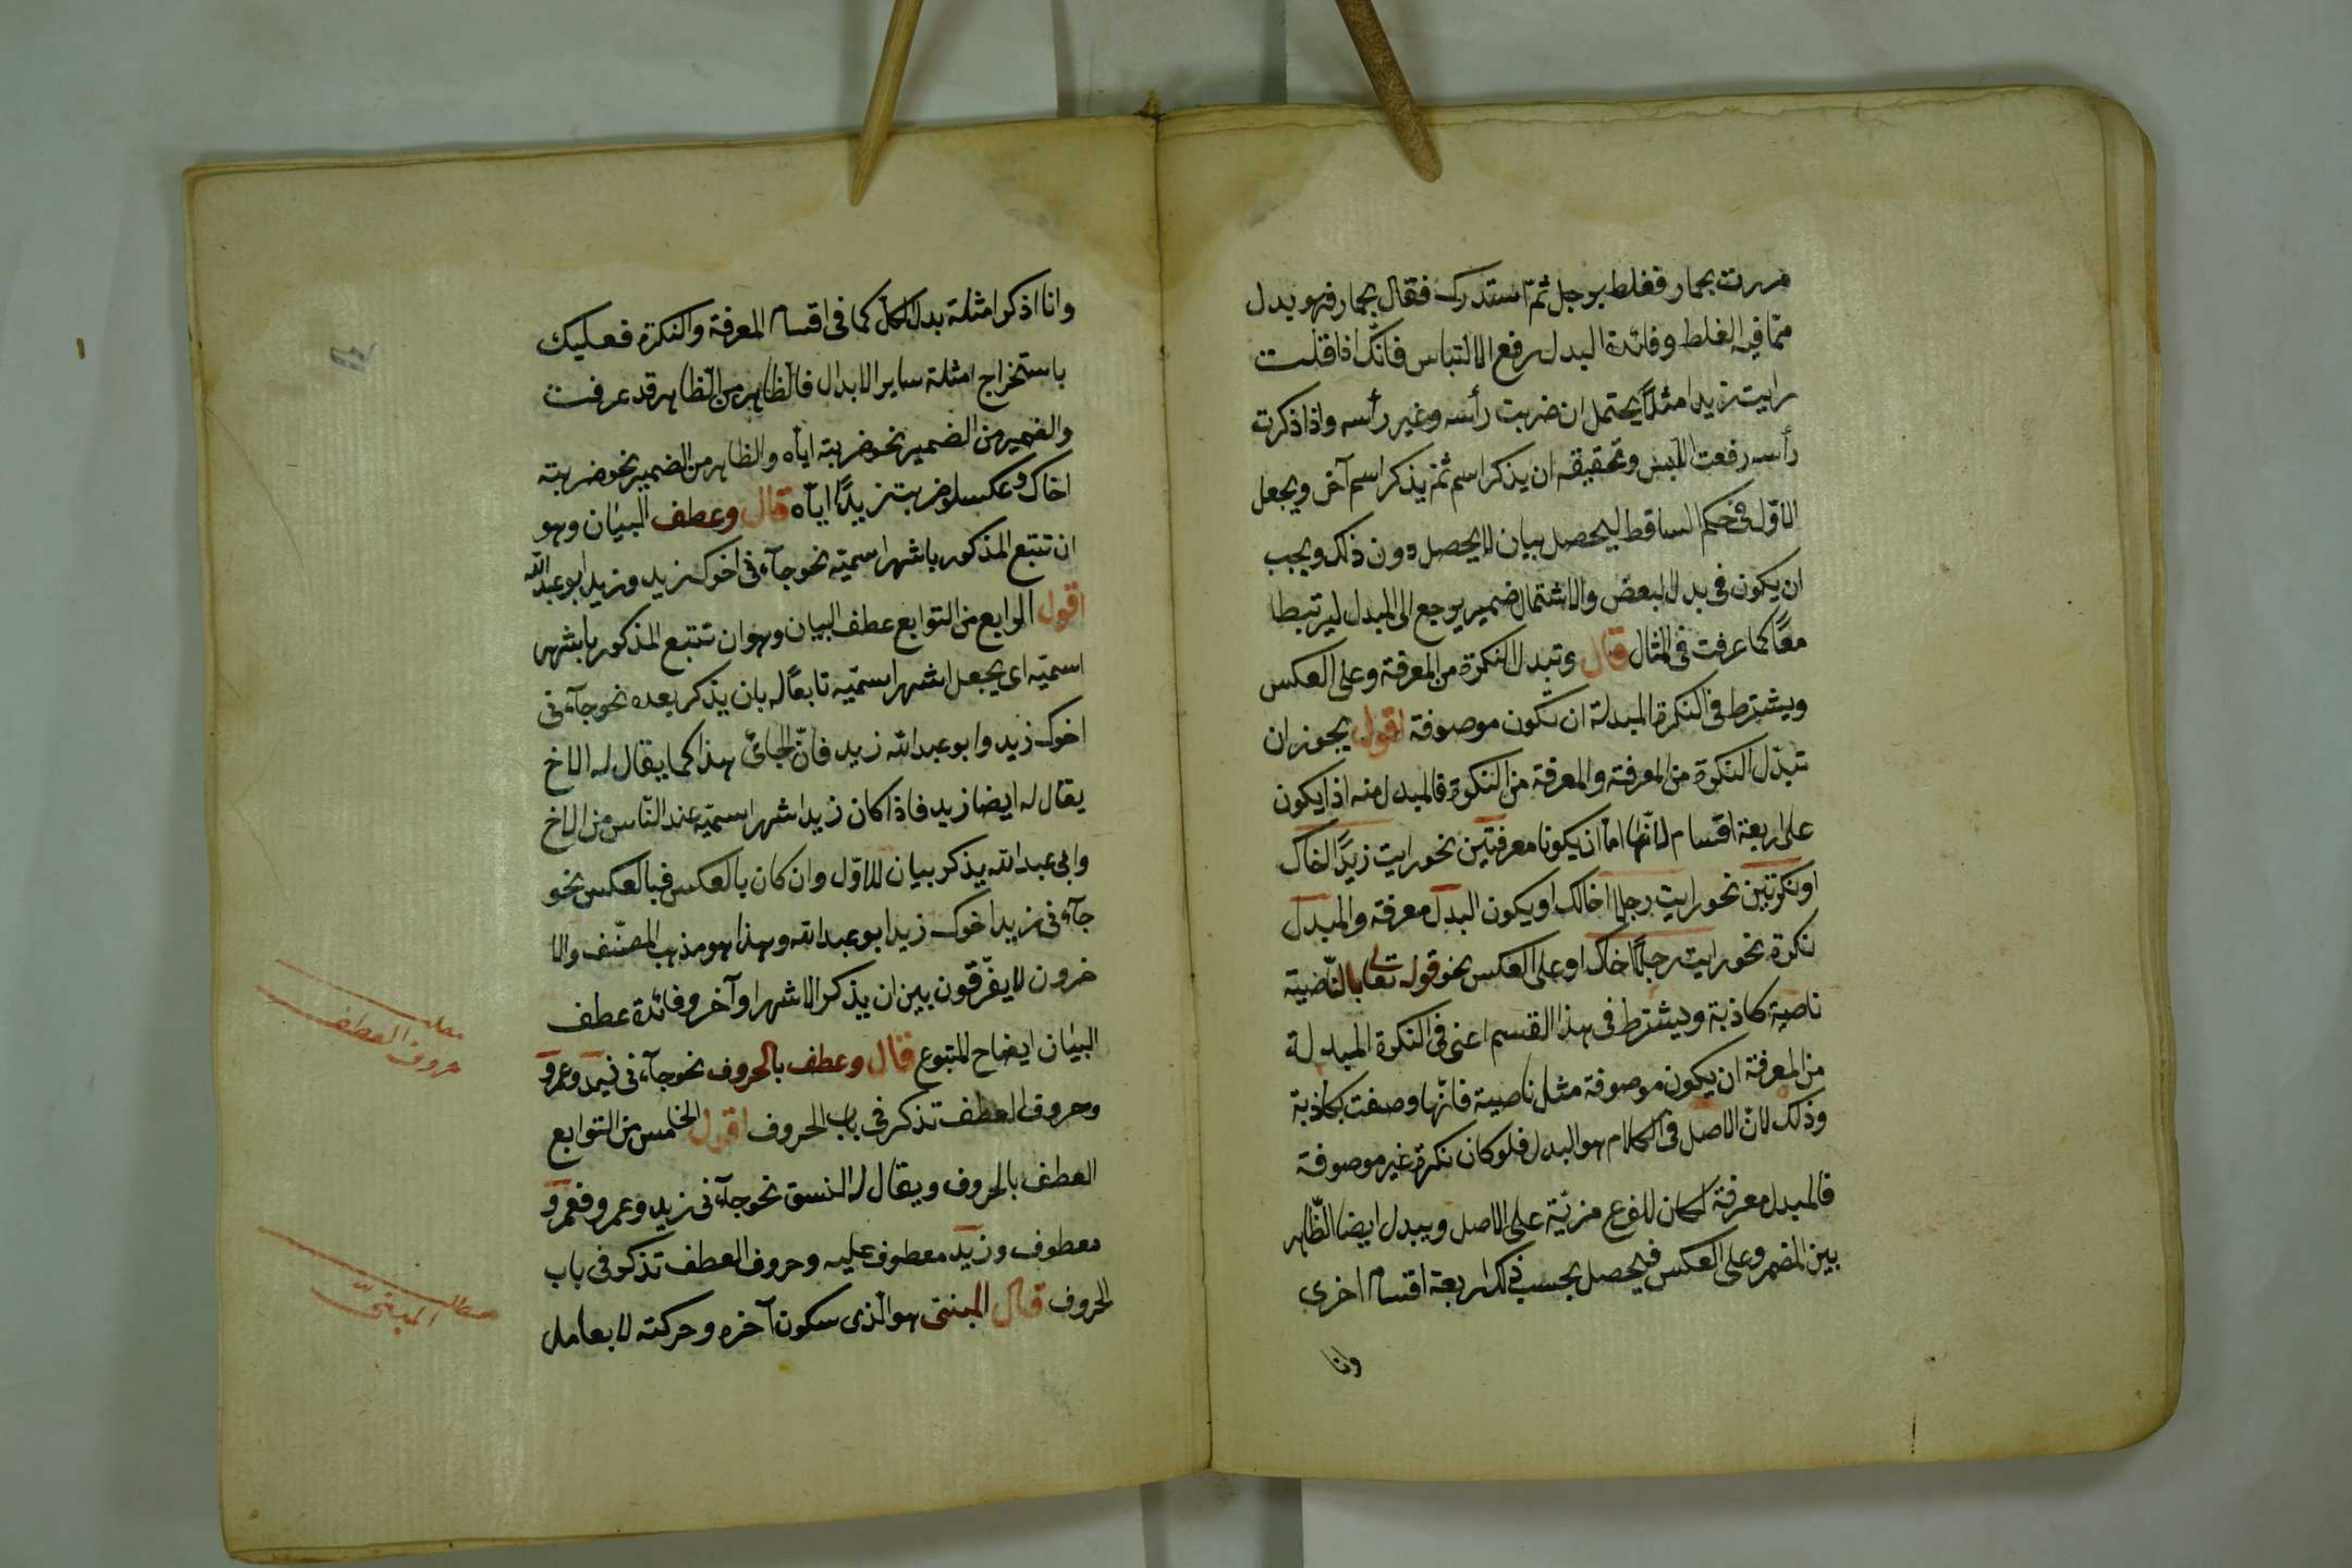 مررت بحمار فغلط برجل ثمّ استدرك فقال بحمار فهو بدل
ممّا فيه الغلط وفائدة البدل رفع الالتباس فانّك اذا قلت
رايت زيدا مثلاً يحتمل ان ضربت رأسه وغير رأسه واذا ذكرت
رأسه رفعت اللبس وتحقيقه ان يذكر اسم ثمّ يذكر اسم آخر ويجعل
الاوّل فى حكم الساقط ليحصل بيان لا يحصل دون ذلك ويجب
ان يكون فى بدل البعض والاشتمال ضمير يرجع الى المبدل ليرتبطا
معًا كما عرفت فى المثال قال وتبدل النكرة من المعرفة وعلى العكس
ويشترط فى النكرة المبدلة ان تكون موصوفة اقول يجوز ان
تبدّل النكرة من المعرفة والمعرفة من النكرة فالمبدل منه اذا يكون
على اربعة اقسام لانّهما امّا ان يكونا معرفتين نحو رايت زيدًا اخاك
او نكرتين نحو رايت رجلا اخالك او يكون البدل معرفة والمبدل
نكرة نحو رايت رجلًا اخاك او على العكس نحو قوله تعالى بالنّاصية
ناصية كاذبة ويشترط فى هذا القسم اعنى فى النكرة المبدلة
من المعرفة ان يكون موصوفة مثل ناصية فانّها وصفت بكاذبة
وذلك لانّ الاصل فى الكلام هو البدل فلو كان نكرة غير موصوفة
فالمبدل معرفة لكان للفرع مزيّة على الاصل ويبدل ايضا الظّاهر
بين المضمر وعلى العكس فيحصل بحسب ذلك اربعة اقسام اخرى
وانا
وانا اذكر امثلة بدل الكل كما فى اقسام المعرفة والنكرة فعليك
باستخراج امثلة ساير الابدال فالظاهر من الظاهر قد عرفت
والضمير من الضمير نحو ضربته ايّاه والظاهر من الضمير نحو ضربته
اخاك وعكسه نحو ضربت زيدًا ايّاه قال وعطف البيان وهو
ان تتبع المذكور باشهر اسميّه نحو جآءنى اخوك زيد وزيد ابو عبد الله
اقول الرابع من التوابع عطف البيان وهو ان تتبع المذكور باشهر
اسميّه اى يجعل اشهر اسميّه تابعًا له بان يذكر بعده نحو جآءنى
اخوك زيد وابو عبد الله زيد فانّ الجائى هذا كما يقال له الاخ
يقال له ايضا زيد فاذا كان زيد اشهر اسميّه عند النّاس من الاخ
وابى عبد الله يذكر بيان للاوّل وان كان بالعكس فبالعكس نحو
جآءنى زيد اخوك زيد ابو عبد الله وهذا هو مذهب المصنّف والا
خرون لا يفرّقون بين ان يذكر الاشهر او آخر وفائدة عطف
البيان ايضاح للمتبوع قال وعطف بالحروف نحو جآءنى زيد وعمرو
وحروف العطف تذكر فى باب الحروف اقول الخامس من التوابع
العطف بالحروف ويقال له النسق نحو جآءنى زيد وعمرو فعمرو
معطوف وزيد معطوف عليه وحروف العطف تذكر فى باب
الحروف قال المبنىّ هو الّذى سكون آخره وحركته لا بعامل
مطلب
حروف العطف
مطلب المبنىّ